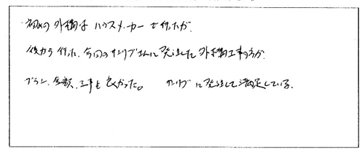 初めの外構はハウスメーカーで行ったが、
後から行った、今回のオンリブさんに発注した外構工事の方が
プラン、金額、工事も良かった。 オンリブに発注して満足している。